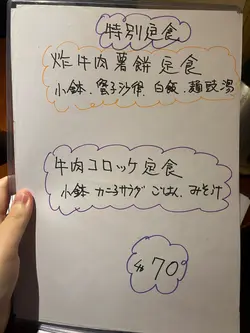 特別定食
炸牛肉薯餅 定食
小鉢、蟹子沙律、白飯、麵豉湯
牛肉コロッケ 定食
小鉢、カニ子サラダ ごはん、みそ汁
$70